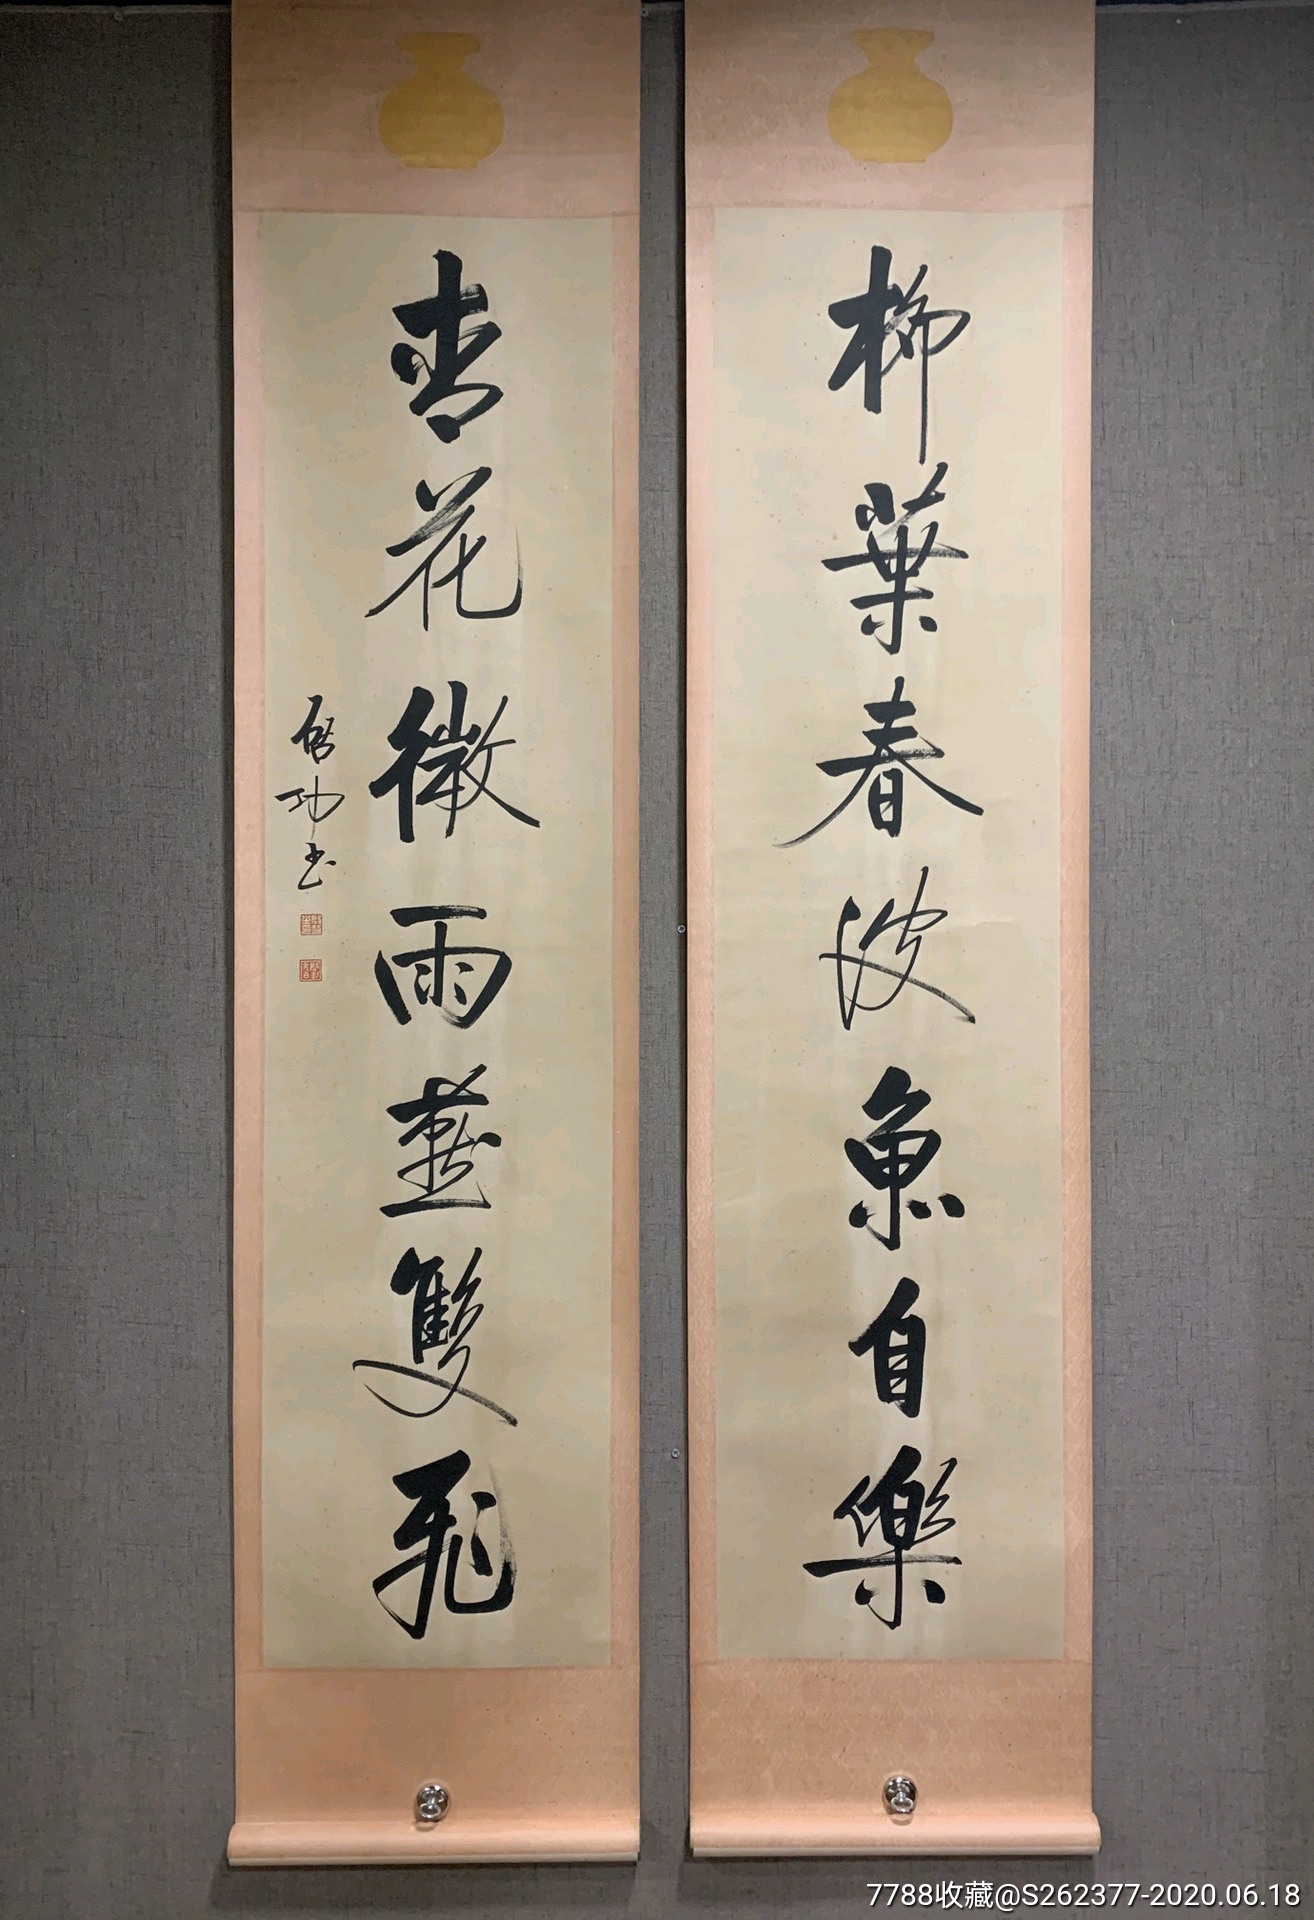 柳葉春波魚自樂
杏花微雨燕雙飛
啓功书
7788收藏@S262377-2020.06.18